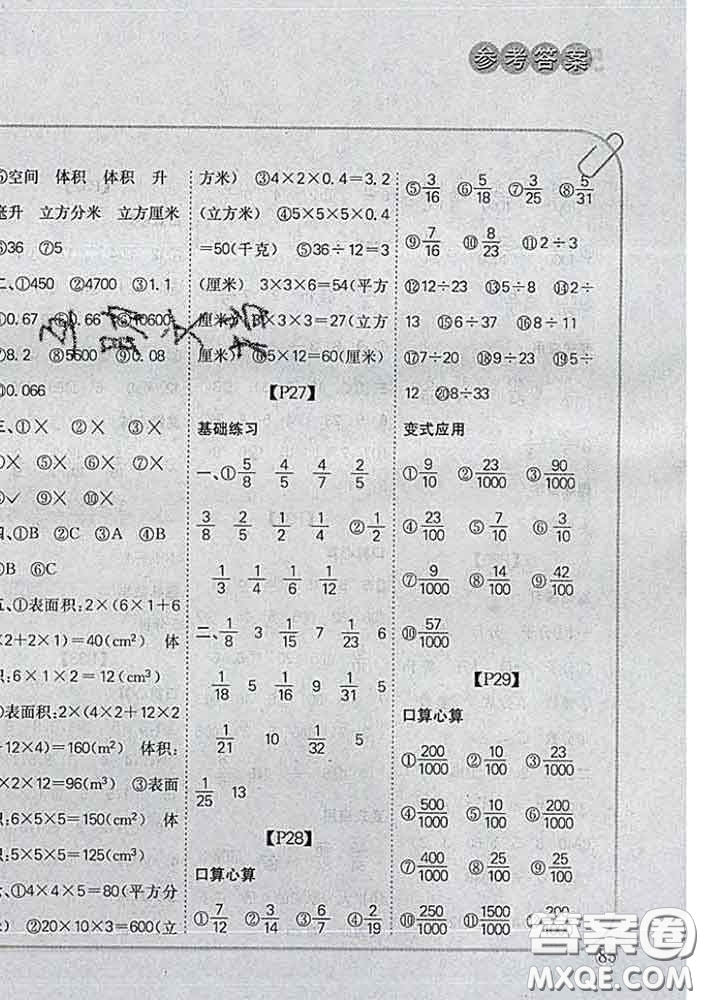 参考答案
⑤空间 体积 体积 升
毫升 立方分米 立方厘米
⑥36 ⑦5
二、①450 ②4700 ③1.1
0.67 66 40600
⑦8.2 ⑧5600 ⑨0.08
0.066
三、①× ②× ③×
× ⑤× ⑥× ⑦×
✓ ⑨× ⑩×
四、①B ②C ③A ④B
B ⑥C
五、①表面积:2×(6×1+6
×2+2×1)=40(cm²) 体
积:6×1×2=12(cm³)
②表面积:2×(4×2+12×2
+12×4)=160(m²) 体积:
×2×12=96(m³) ③表面
积:6×5×5=150(cm²) 体
积:5×5×5=125(cm³)
、①4×4×5=80(平方分
米) ②20×10×3=600(立
方米) ③4×2×0.4=3.2
(立方米) ④5×5×5×0.4
=50(千克) ⑤36÷12=3
(厘米) 3×3×6=54(平方
厘米) 3×3×3=27(立方
厘米) ⑥5×12=60(厘米)
【P27】
基础练习
一、①5/8 4/5 4/7 2/5
3/8 2/5 1/2 1/4 ②1/2
1/3 1/4 1/5 1/6
二、1/8 3 1/15 7 1/23 6
1/18 5 1/16 9 1/31 5
1/21 10 1/32 5
1/25 13
【P28】
口算心算
①7/12 ②3/14 ③6/7 ④2/19
⑤3/16 ⑥5/18 ⑦3/25 ⑧5/31
⑨7/16 ⑩8/23 ⑪2÷3
⑫12÷23 ⑬5÷8 ⑭2÷
13 ⑮6÷37 ⑯7÷13
⑰7÷20 ⑱9÷23 ⑲5÷
12 ⑳8÷33
变式应用
①9/10 ②23/1000 ③90/1000
④23/100 ⑤7/10 ⑥3/10
⑦9/1000 ⑧14/100 ⑨42/100
⑩57/1000
【P29】
口算心算
①200/1000 ②10/100 ③23/1000
④500/1000 ⑤10/100 ⑥200/1000
⑦400/1000 ⑧25/100 ⑨25/100
⑩250/1000 ⑪1500/1000 ⑫200
85
答案圈
MXQE.COM